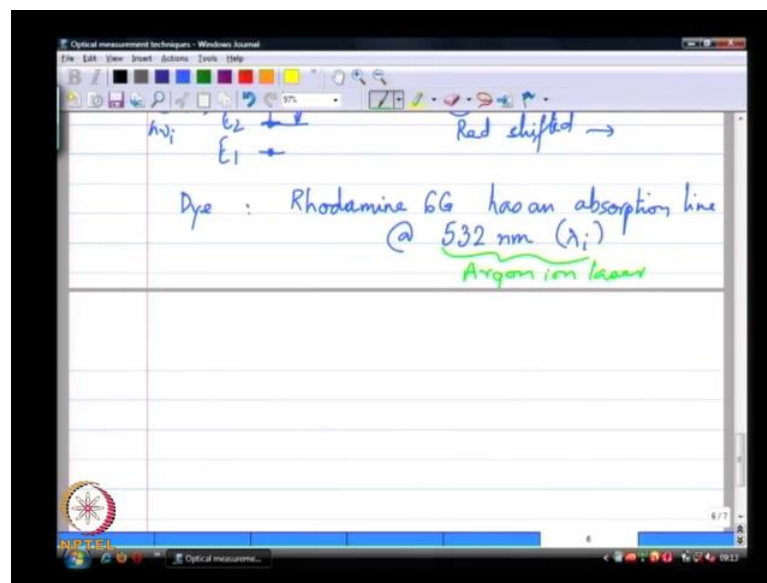 Optical measurement techniques - Windows Journal
File Edit View Insert Actions Tools Help
B I
97%
hνi E2 Red shifted →
E1
Dye : Rhodamine 6G has an absorption line
@ 532 nm (λi)
Argon ion laser
6/7
6
NPTEL
Optical measureme...
09:13